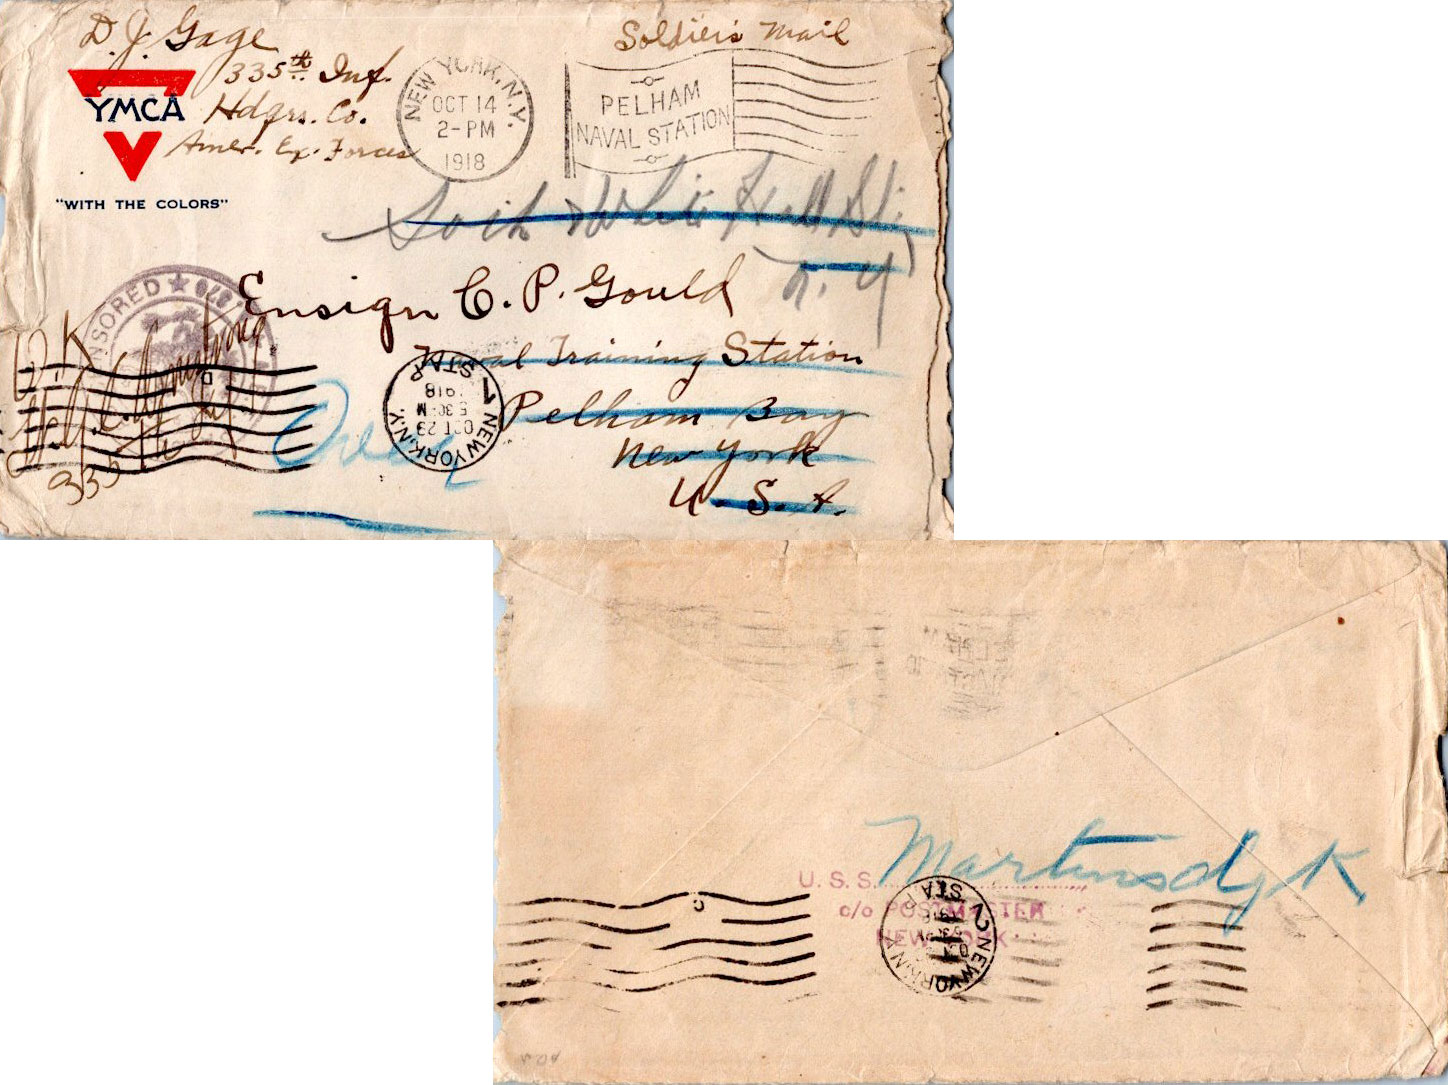 D. J. Gage
335th Inf.
Hdqrs. Co.
Amer. Ex. Forces
Soldier's Mail
YMCA
"WITH THE COLORS"
NEW YORK, N.Y.
OCT 14
2-PM
1918
PELHAM
NAVAL STATION
White Hall St.
N. Y
Ensign C. P. Gould
Naval Training Station
Pelham Bay
New York
U. S. A.
OK
335 Inf
NEW YORK, N.Y.
OCT 23
5 30 PM
1918
STA. P
Over
Martinsdyk
U. S. S.
c/o POSTMASTER
NEW YORK
NEW YORK, N.Y.
STA. P
2